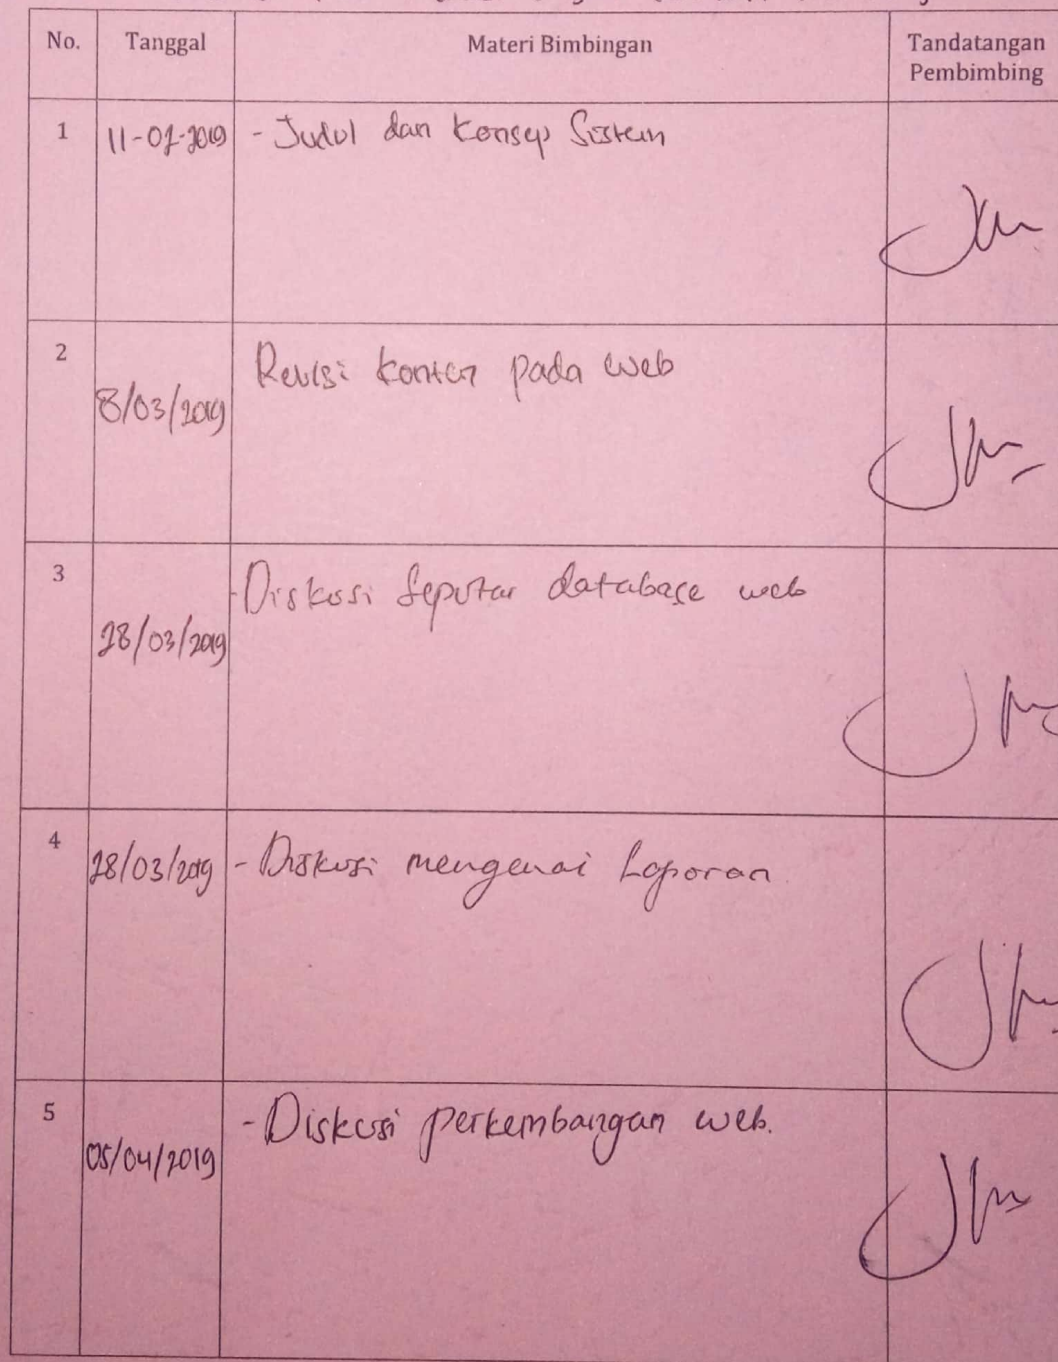 No. Tanggal Materi Bimbingan Tandatangan
Pembimbing
1 11-02-2019 - Judul dan Konsep Sistem
2 Revisi konten pada web
8/03/2019
3 - Diskusi Seputar database web
28/03/2019
4 28/03/2019 - Diskusi mengenai Laporan
5 - Diskusi perkembangan web.
05/04/2019